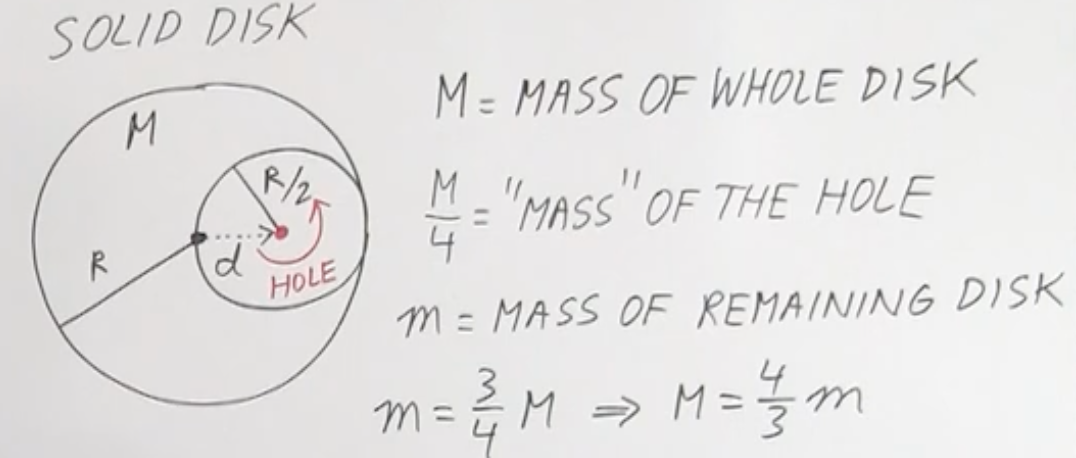 SOLID DISK
M
R/2
R
d
HOLE
M = MASS OF WHOLE DISK
M/4 = "MASS" OF THE HOLE
m = MASS OF REMAINING DISK
m = 3/4 M ⇒ M = 4/3 m